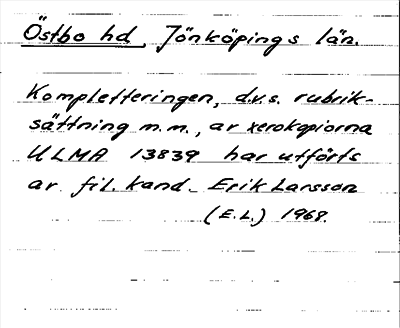 Östbo hd, Jönköpings län.
Kompletteringen, d.v.s. rubrik-
sättning m.m., av xerokopiorna
ULMA 13839 har utförts
av fil. kand. Erik Larsson
(E.L.) 1968.